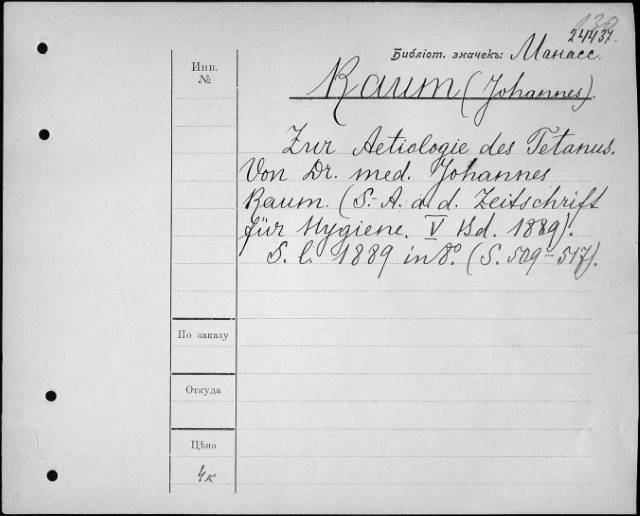 24437.
Библіот. значекъ: Манасс.
Инв.
№
Raum (Johannes).
Zur Aetiologie des Tetanus.
Von Dr. med. Johannes
Raum. (S.-A. a. d. Zeitschrift
für Hygiene. V Bd. 1889).
S. l. 1889 in 8º. (S. 509-517).
По заказу
Откуда
Цѣна
4к